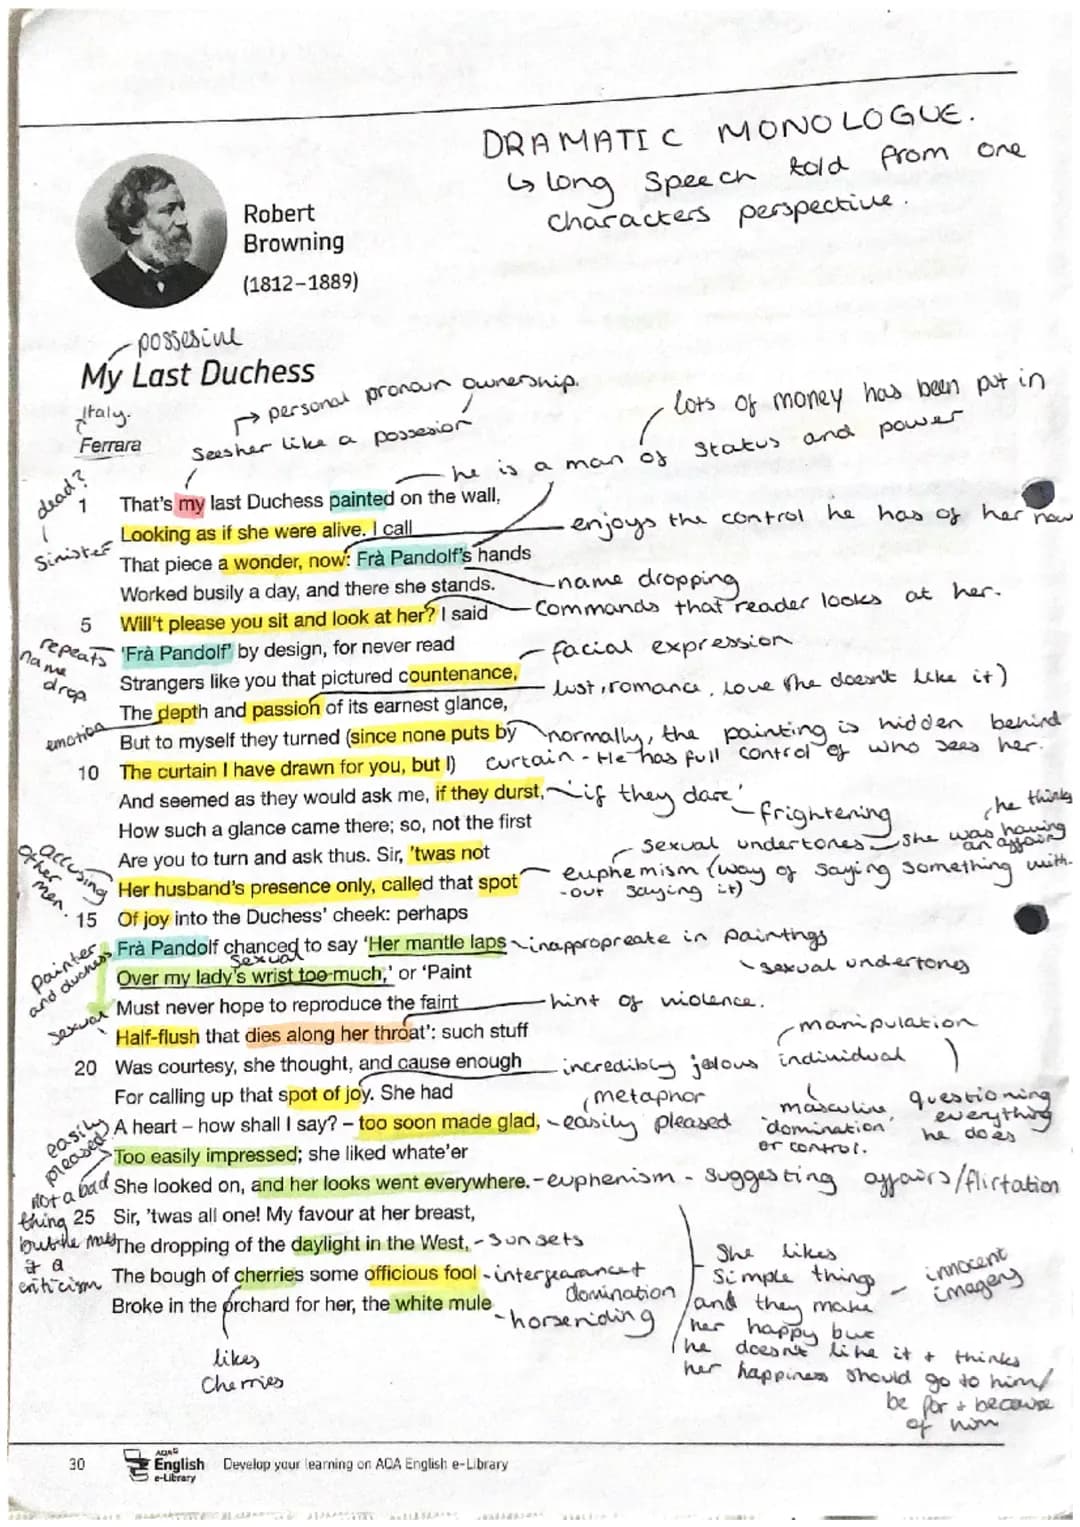 DRAMATIC MONOLOGUE.
↳ long speech told from one
characters perspective.
Robert
Browning
(1812–1889)
possesive
My Last Duchess
Italy.
Ferrara
→ personal pronoun ownership.
Sees her like a possesion
lots of money has been put in
he is a man of status and power
dead?
sinister
1 That's my last Duchess painted on the wall,
Looking as if she were alive. I call
enjoys the control he has of her now
That piece a wonder, now: Frà Pandolf's hands
Worked busily a day, and there she stands.
name dropping
5 Will't please you sit and look at her? I said
Commands that reader looks at her.
repeats
name
drop
'Frà Pandolf' by design, for never read
facial expression
Strangers like you that pictured countenance,
lust, romance, love (he doesn't like it)
The depth and passion of its earnest glance,
emotion
But to myself they turned (since none puts by
normally, the painting is hidden behind
10 The curtain I have drawn for you, but I)
curtain - He has full control of who sees her.
And seemed as they would ask me, if they durst,
'if they dare'
frightening
How such a glance came there; so, not the first
Are you to turn and ask thus. Sir, 'twas not
sexual undertones
she was having
an affair
he thinks
accusing
other
men.
Her husband's presence only, called that spot
euphemism (way of saying something with-
-out saying it)
15 Of joy into the Duchess' cheek: perhaps
Frà Pandolf chanced to say 'Her mantle laps
inappropreate in paintings
Painter
and duchess
sexual
Over my lady's wrist too much,' or 'Paint
sexual undertones
Must never hope to reproduce the faint
hint of violence.
sexual
Half-flush that dies along her throat': such stuff
manipulation
20 Was courtesy, she thought, and cause enough
incredibly jelous individual
For calling up that spot of joy. She had
metaphor
masculine
'domination'
or control.
questioning
everything
he does
A heart – how shall I say? – too soon made glad,
easily pleased
easily
pleased
Too easily impressed; she liked whate'er
She looked on, and her looks went everywhere.
- euphemism - suggesting affairs/flirtation
not a bad
thing
but he
it a
criticism
25 Sir, 'twas all one! My favour at her breast,
The dropping of the daylight in the West,
- sunsets
The bough of cherries some officious fool
domination
Broke in the orchard for her, the white mule
- horseriding
She likes
simple things
and they make
her happy but
he doesn't like it + thinks
her happiness should go to him/
be for + because
of him
innocent
imagery
likes
cherries
30
AQA
English
e-Library
Develop your learning on AQA English e-Library